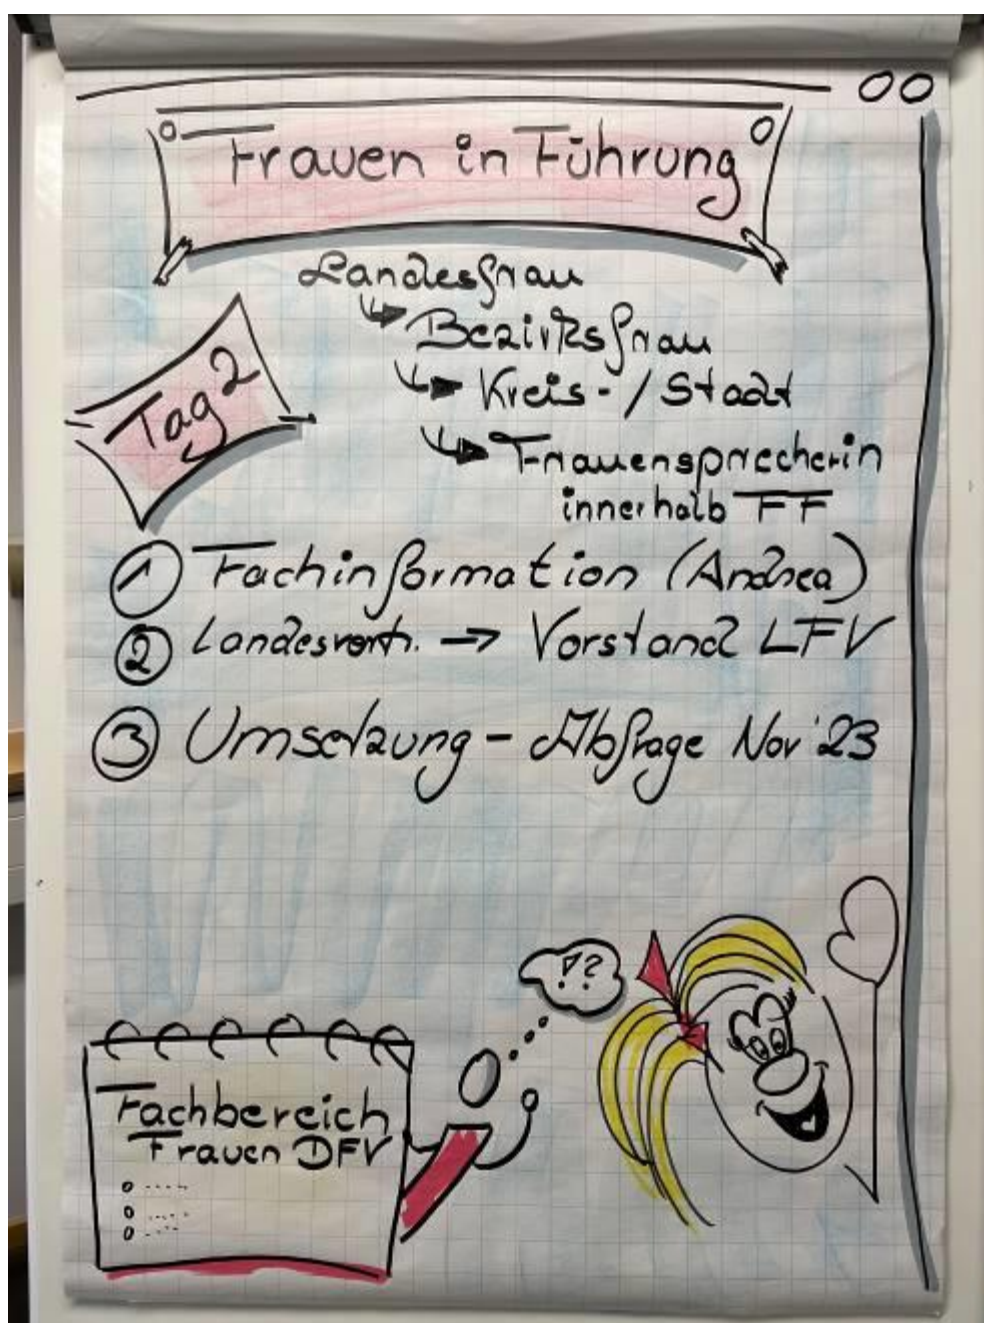 Frauen in Führung
Landesfrau
Bezirksfrau
Kreis-/Stadt
Frauensprecherin
innerhalb FF
Tag 2
1 Fachinformation (Andrea)
2 Landesvertr. → Vorstand LFV
3 Umsetzung - Abfrage Nov '23
!?
Fachbereich
Frauen DFV